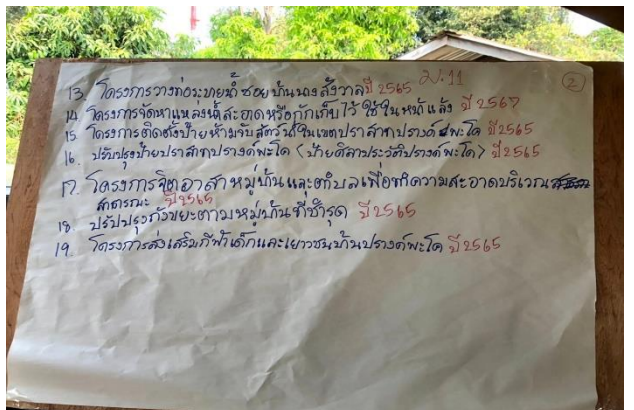 ม.11
②
13. โครงการวางท่อระบายน้ำซอยบ้านนางสังวาล ปี 2565
14. โครงการจัดหาแหล่งน้ำสะอาดหรือกักเก็บไว้ใช้ในหน้าแล้ง ปี 2567
15. โครงการติดตั้งป้ายห้ามจับสัตว์น้ำในเขตปราสาทปรางค์พะโค ปี 2565
16. ปรับปรุงป้ายปราสาทปรางค์พะโค (ป้ายศิลาประวัติปรางค์พะโค) ปี 2565
17. โครงการจิตอาสาหมู่บ้านและตำบลเพื่อทำความสะอาดบริเวณ
สาธารณะ ปี 2565
18. ปรับปรุงถังขยะตามหมู่บ้านที่ชำรุด ปี 2565
19. โครงการส่งเสริมกีฬาเด็กและเยาวชนบ้านปรางค์พะโค ปี 2565